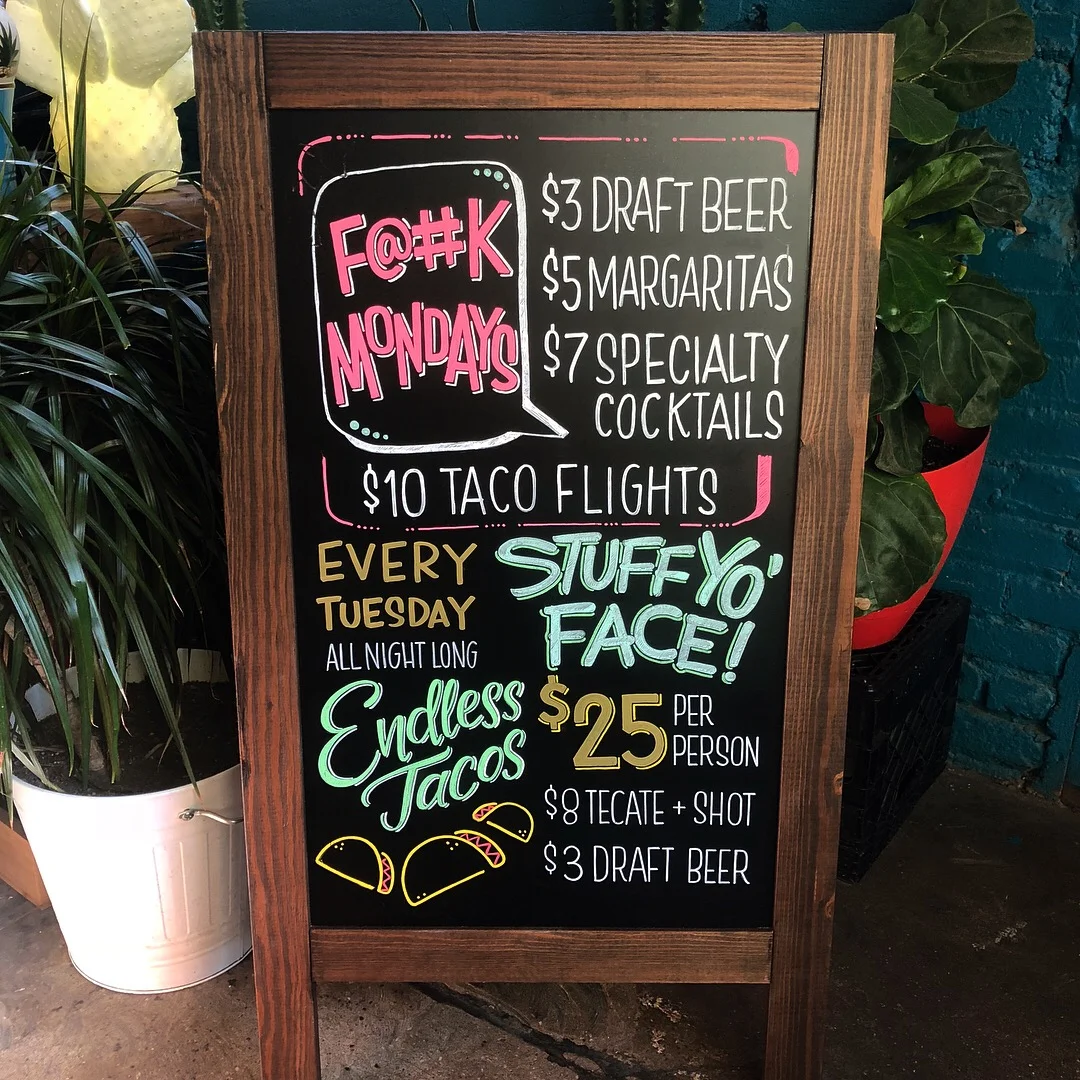 F@##K
MONDAYS
$3 DRAFT BEER
$5 MARGARITAS
$7 SPECIALTY
COCKTAILS
$10 TACO FLIGHTS
EVERY
TUESDAY
ALL NIGHT LONG
Endless
Tacos
STUFF YO'
FACE!
$25 PER
PERSON
$8 TECATE + SHOT
$3 DRAFT BEER